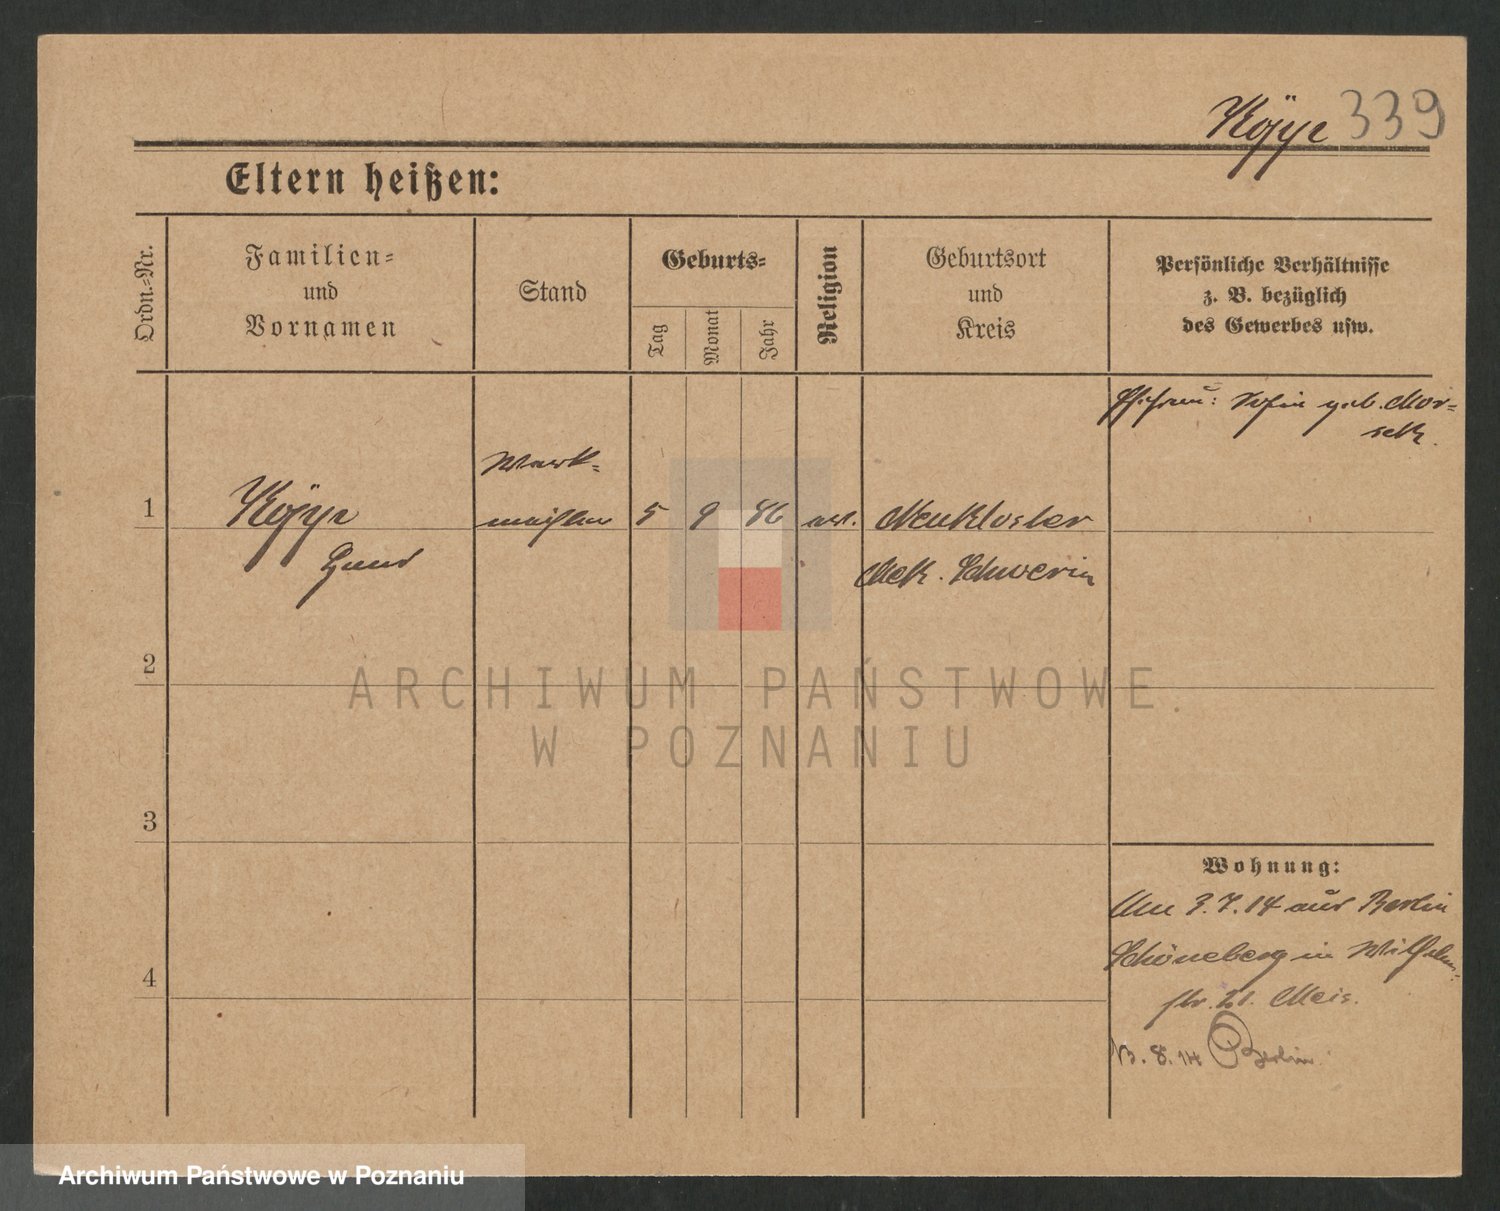 Köppe 339
Eltern heißen:
Ordn.-Nr.
Familien-
und
Vornamen
Stand
Geburts-
Tag
Monat
Jahr
Religion
Geburtsort
und
Kreis
Persönliche Verhältnisse
z. B. bezüglich
des Gewerbes usw.
Ehefrau: geb. Mor-
Werk-
1 Köppe meister 5 9 86 ev. Neukloster
Meck. Schwerin
2
ARCHIWUM PAŃSTWOWE
W POZNANIU
3
Wohnung:
Am 3.7.14 aus Berlin
4
Schöneberg in Wilhelm-
str. 21.
13. 8. 14 Berlin
Archiwum Państwowe w Poznaniu